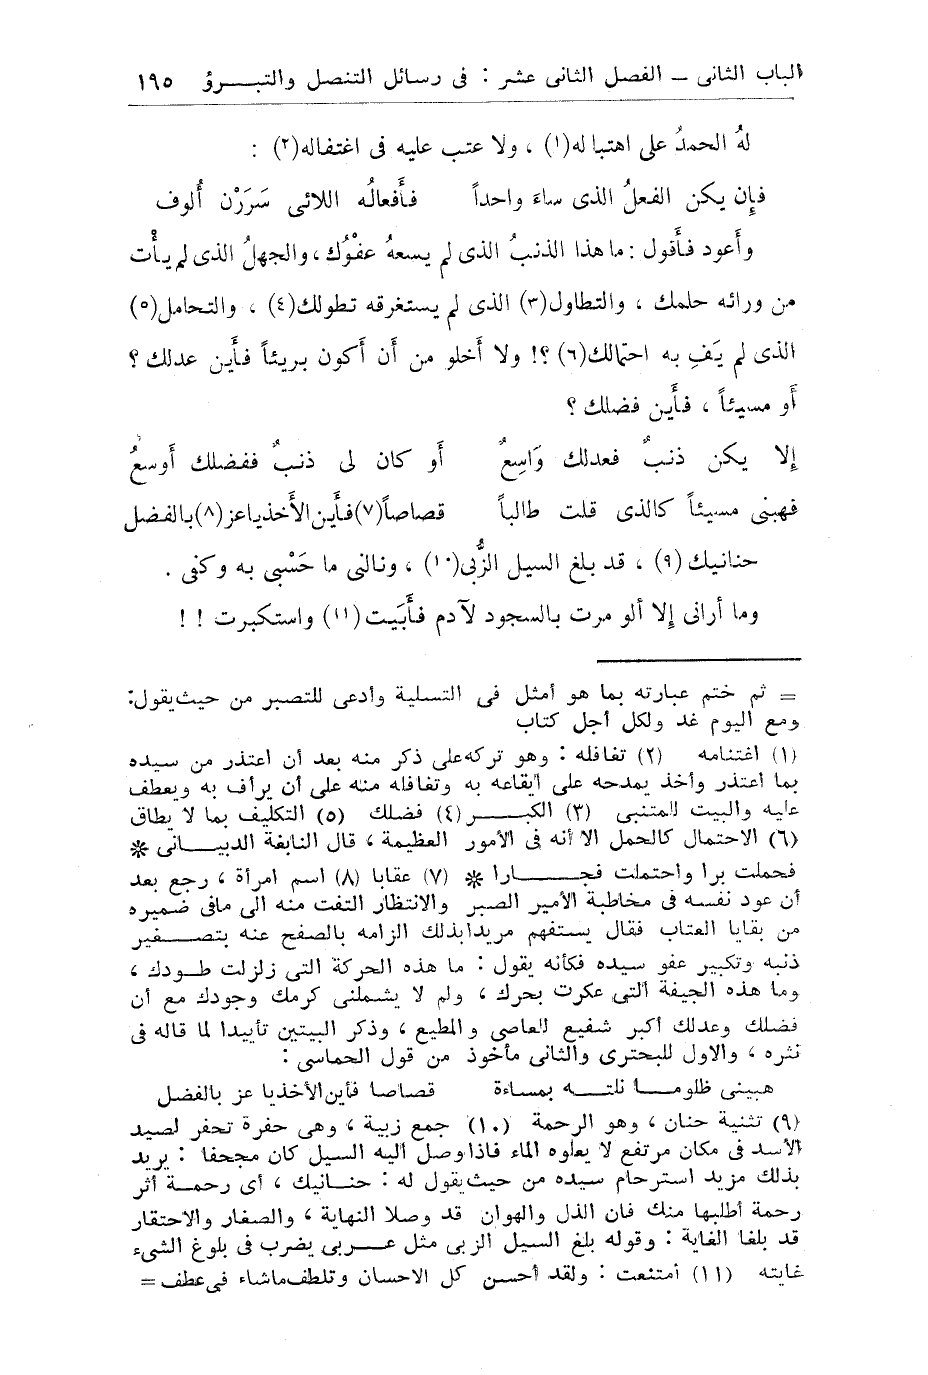 الباب الثانى – الفصل الثانى عشر : فى رسائل التنصل والتبـــرؤ ١٩٥
لهُ الحمدُ على اهتباله(١) ، ولا عتب عليه فى اغتفاله(٢) :
فإن يكن الفعلُ الذى ساءَ واحداً فأَفعالُه اللائى سَرَرْن أُلوف
وأَعود فأَقول : ما هذا الذنبُ الذى لم يسعهُ عفْوُك ، والجهلُ الذى لم يأْت
من ورائه حلمك ، والتطاول(٣) الذى لم يستغرقه تطولك(٤) ، والتحامل(٥)
الذى لم يَفِ به احتمالك(٦) ؟! ولا أَخلو من أَن أَكون بريئاً فأَين عدلك ؟
أَو مسيئاً ، فأَين فضلك ؟
إلا يكن ذنبٌ فعدلك وَاسِعٌ أَو كان لى ذنبٌ ففضلك أَوسعُ
فهبنى مسيئاً كالذى قلت طالباً قصاصاً(٧) فأَين الأَخذ ياعز(٨) بالفضل
حنانيك (٩) ، قد بلغ السيل الزُّبى(١٠) ، ونالنى ما حَسْبى به وكفى .
وما أرانى إلا ألو مرت بالسجود لآدم فأَبَيت(١١) واستكبرت ! !
= ثم ختم عبارته بما هو أمثل فى التسلية وأدعى للتصبر من حيث يقول:
ومع اليوم غد ولكل أجل كتاب
(١) اغتنامه (٢) تغافله : وهو تركه على ذكر منه بعد أن اعتذر من سيده
بما اعتذر وأخذ يمدحه على ايقاعه به وتغافله منه على أن يرأف به ويعطف
عليه والبيت للمتنبى (٣) الكبـــر (٤) فضلك (٥) التكليف بما لا يطاق
(٦) الاحتمال كالحمل الا أنه فى الأمور العظيمة ، قال النابغة الذبيـــانى *
فحملت برا واحتملت فجـــارا * (٧) عقابا (٨) اسم امرأة ، رجع بعد
أن عود نفسه فى مخاطبة الأمير الصبر والانتظار التفت منه الى مافى ضميره
من بقايا العتاب فقال يستفهم مريدا بذلك الزامه بالصفح عنه بتصـــغير
ذنبه وتكبير عفو سيده فكأنه يقول : ما هذه الحركة التى زلزلت طـودك ،
وما هذه الجيفة التى عكرت بحرك ، ولم لا يشملنى كرمك وجودك مع أن
فضلك وعدلك أكبر شفيع للعاصى والمطيع ، وذكر البيتين تأييدا لما قاله فى
نثره ، والاول للبحترى والثانى مأخوذ من قول الحماسى :
هبينى ظلومـــا نلتـــه بمساءة قصاصا فأين الأخذ يا عز بالفضل
(٩) تثنية حنان ، وهو الرحمة (١٠) جمع زبية ، وهى حفرة تحفر لصيد
الأسد فى مكان مرتفع لا يعلوه الماء فاذا وصل اليه السيل كان مجحفا : يريد
بذلك مزيد استرحام سيده من حيث يقول له : حنـانيك ، أى رحمـة أثر
رحمة أطلبها منك فان الذل والهوان قد وصلا النهاية ، والصغار والاحتقار
قد بلغا الغاية : وقوله بلغ السيل الزبى مثل عـــربى يضرب فى بلوغ الشىء
غايته (١١) أمتنعت : ولقد أحسن كل الاحسان وتلطف ماشاء فى عطف =